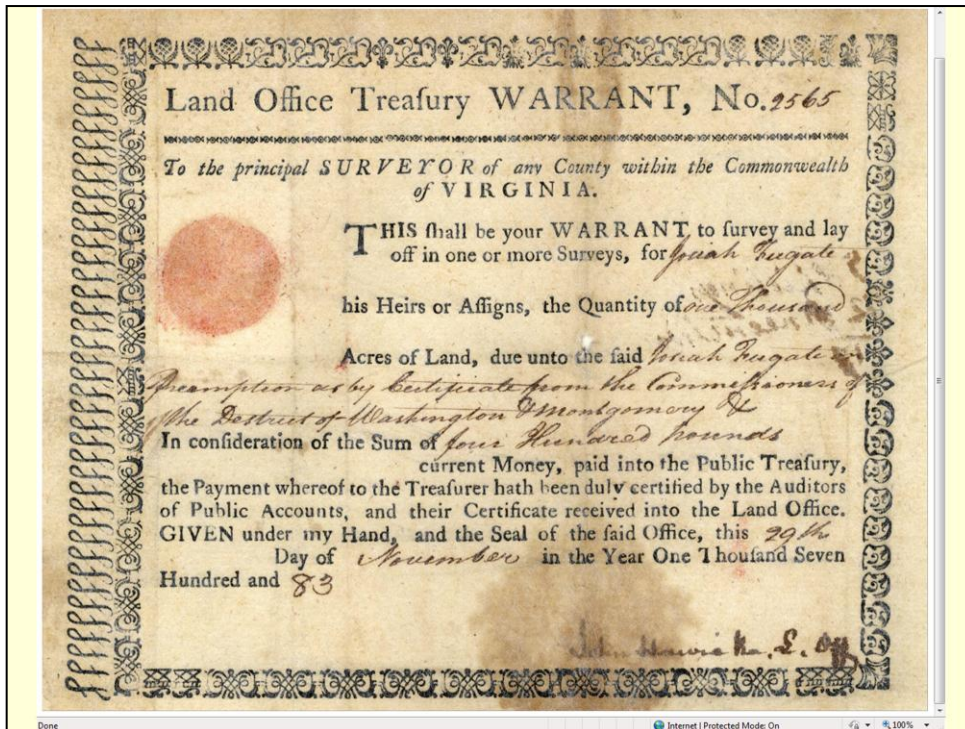 Land Office Treaſury WARRANT, No. 2565
To the principal SURVEYOR of any County within the Commonwealth
of VIRGINIA.
THIS ſhall be your WARRANT to ſurvey and lay
off in one or more Surveys, for Josiah Fugate
his Heirs or Aſſigns, the Quantity of one Thousand
Acres of Land, due unto the ſaid Josiah Fugate in
Preemption as by Certificate from the Commissioners of
the District of Washington & Montgomery &
In conſideration of the Sum of four Hundred pounds
current Money, paid into the Public Treaſury,
the Payment whereof to the Treaſurer hath been duly certified by the Auditors
of Public Accounts, and their Certificate received into the Land Office.
GIVEN under my Hand, and the Seal of the ſaid Office, this 29th
Day of November in the Year One Thouſand Seven
Hundred and 83
John Harvie Re. L. Off
Done
Internet | Protected Mode: On
100%